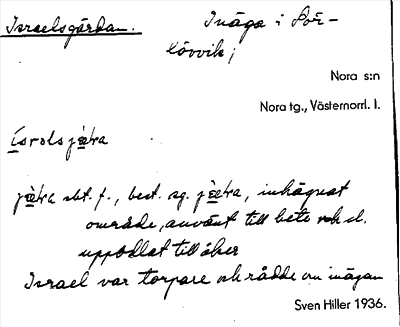 Israelsgårdan. Inäga i Sör-
lövvik;
Nora s:n
Nora tg., Västernorrl. l.
ísrolsjèt̀ra
jèt̀ra sbt. f., best. sg. jèt̀ra, inhägnat
område, använt till bete och d.
uppodlat till åker
Israel var torpare och rådde om inägan
Sven Hiller 1936.